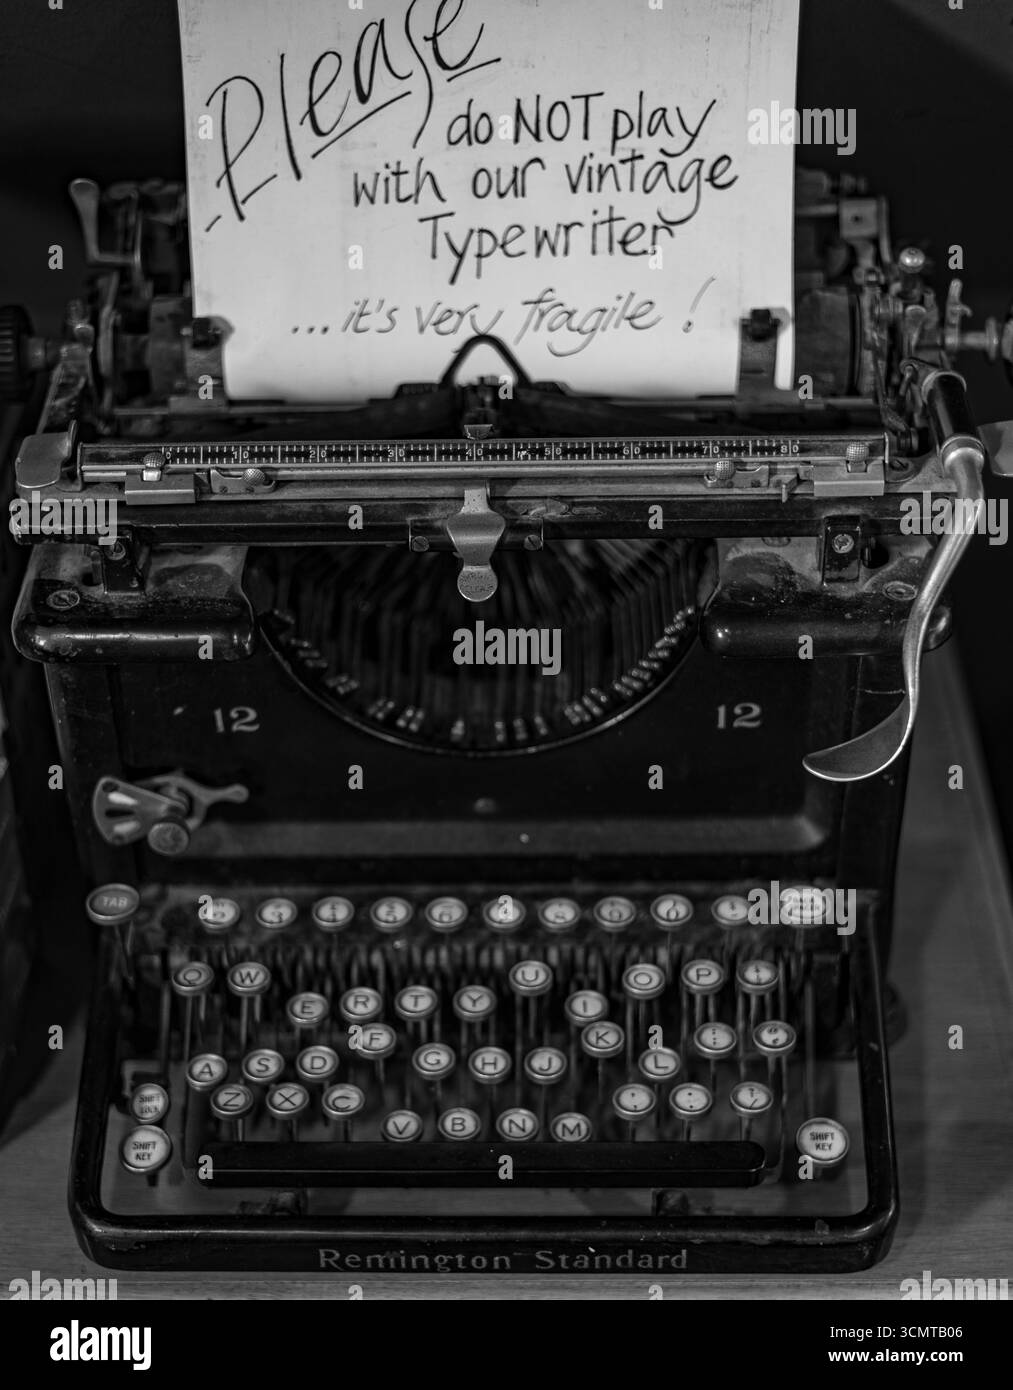 Please
do NOT play
with our vintage
Typewriter
... it's very fragile !
0 10 20 30 40 50 60 70 80
12 12
TAB 2 3 4 5 6 7 8 9 0
Q W U O P
E R T Y I
F K
A S D G H J L
SHIFT LOCK Z X C
V B N M
SHIFT KEY SHIFT KEY
Remington Standard
alamy
Image ID: 3CMTB06
www.alamy.com